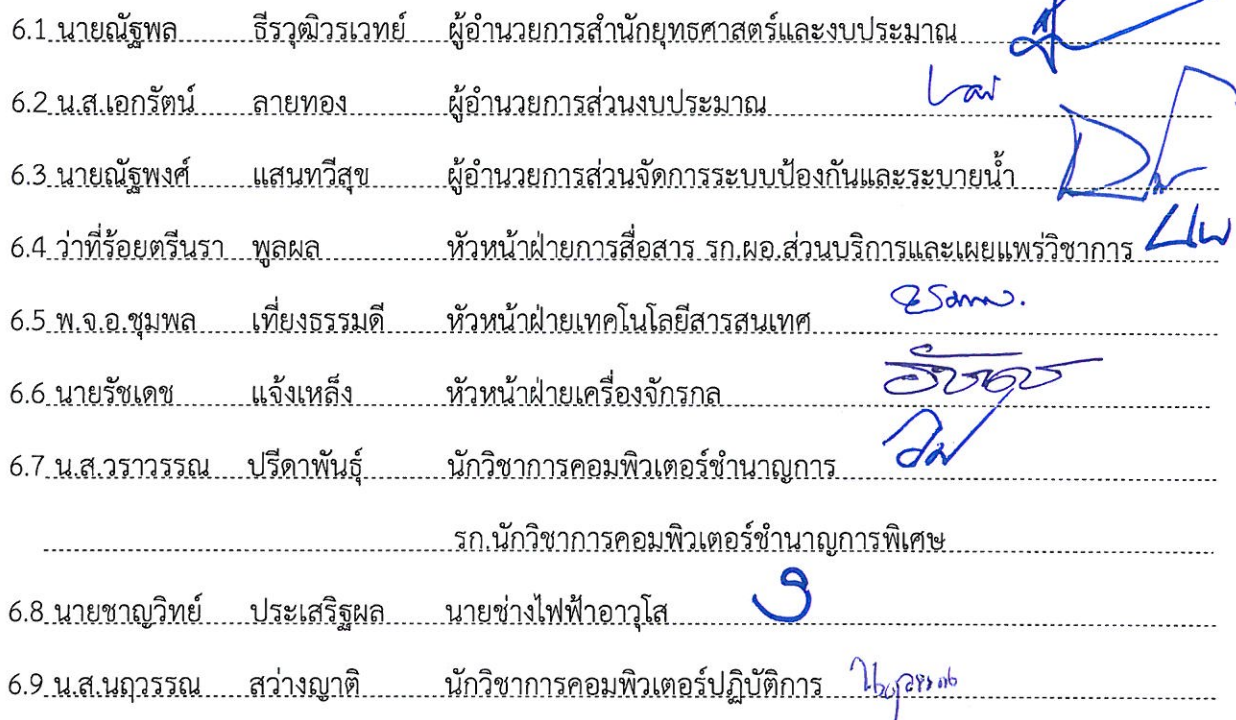 6.1 นายณัฐพล ธีรวุฒิวรเวทย์ ผู้อำนวยการสำนักยุทธศาสตร์และงบประมาณ
6.2 น.ส.เอกรัตน์ ลายทอง ผู้อำนวยการส่วนงบประมาณ
6.3 นายณัฐพงศ์ แสนทวีสุข ผู้อำนวยการส่วนจัดการระบบป้องกันและระบายน้ำ
6.4 ว่าที่ร้อยตรีนรา พูลผล หัวหน้าฝ่ายการสื่อสาร รก.ผอ.ส่วนบริการและเผยแพร่วิชาการ
6.5 พ.จ.อ.ชุมพล เที่ยงธรรมดี หัวหน้าฝ่ายเทคโนโลยีสารสนเทศ
6.6 นายรัชเดช แจ้งเหล็ง หัวหน้าฝ่ายเครื่องจักรกล
6.7 น.ส.วราวรรณ ปรีดาพันธุ์ นักวิชาการคอมพิวเตอร์ชำนาญการ
รก.นักวิชาการคอมพิวเตอร์ชำนาญการพิเศษ
6.8 นายชาญวิทย์ ประเสริฐผล นายช่างไฟฟ้าอาวุโส
6.9 น.ส.นฤวรรณ สว่างญาติ นักวิชาการคอมพิวเตอร์ปฏิบัติการ